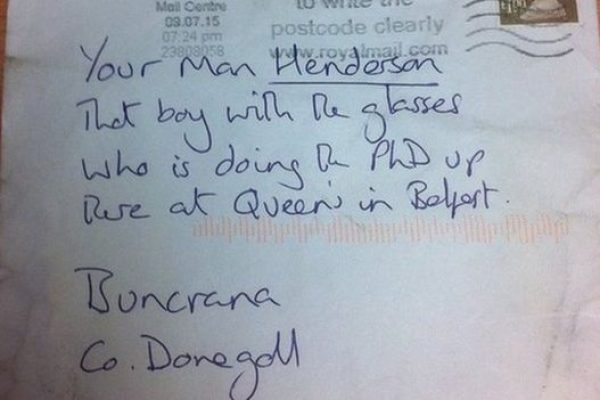 Mail Centre
09.07.15
07:24 pm
23803058
to write the
postcode clearly
www.royalmail.com
Your Man Henderson
That boy with the glasses
who is doing the PhD up
there at Queen's in Belfast.
Buncrana
Co. Donegall